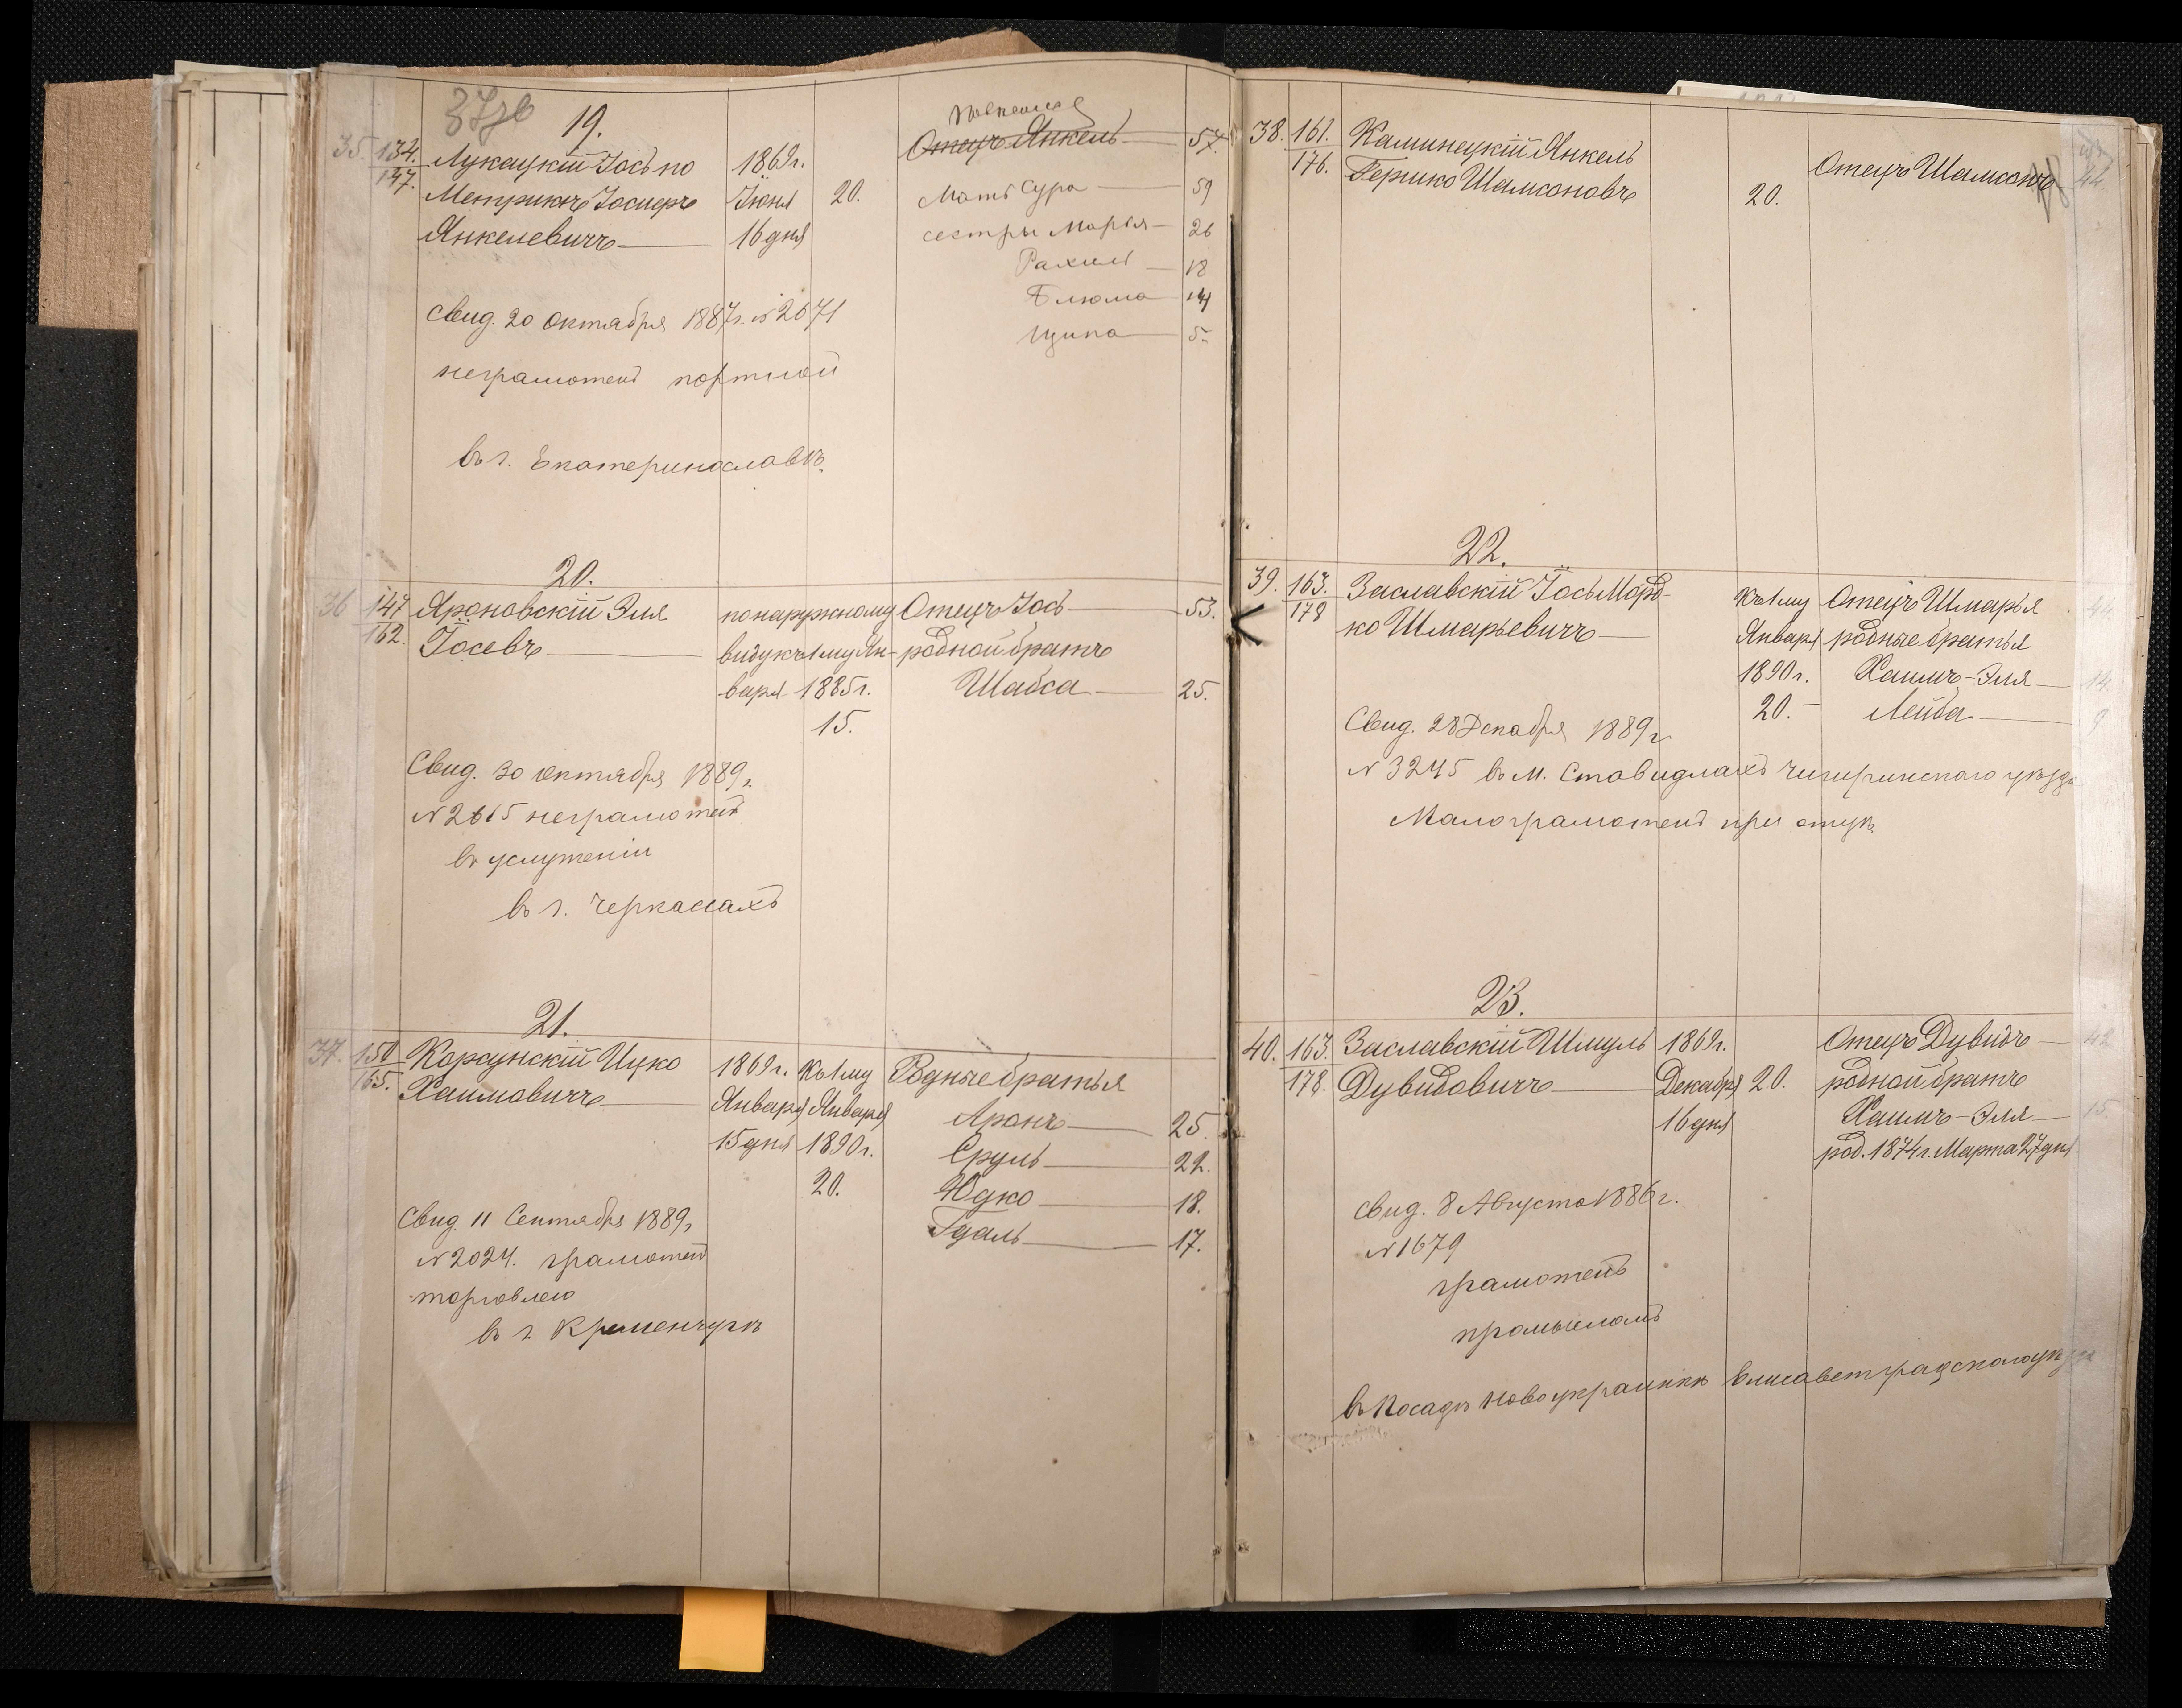 37зв
19.
35. 134. Лукацкій Іось по 1869г. Отецъ Янкель 57.
147. Метрикѣ Іосиеръ Іюня 20. Мать Сура 59
Янкелевичъ 16 дня сестры Марья 26
Рахиль 18
Блюма 14
Ципа 5
Свид. 20 Октября 1887г. № 2671
неграмотенъ портной
въ г. Екатеринославѣ
20.
36 147 Яроновскій Эля по наружному Отецъ Іось 53.
162. Іосевъ виду къ 1му Ян- родной братъ
варя 1885г. Шабса 25.
15.
Свид. 30 октября 1889г.
№ 2615 неграмотенъ
въ услуженіи
въ г. Черкассахъ
21.
37. 150 Корсунскій Ицко 1869г. Къ 1му Родные братья
165. Хаимовичъ Января Января Аронъ 25.
15 дня 1890г. Сруль 22.
20. Юдко 18.
Гдаль 17.
Свид. 11 Сентября 1889г
№ 2024. грамотенъ
торговлею
въ г Кременчугѣ
38. 161. Каминецкій Янкель Отецъ Шамсонъ 44
176. Гершко Шамсоновъ 20.
22.
39. 163. Заславскій Іось Мард- Къ 1му Отецъ Шмарья 44
178 ко Шмарьевичъ Января родные братья
1890г. Хаимъ-Эля 14
20. Лейба 9
Свид. 28 Декабря 1889г
№ 3245 въ м. Ставидлахъ Чигиринского уѣзда
Малограмотенъ при отцѣ
23.
40. 163. Заславскій Шмуль 1869г. Отецъ Дувидъ 42
178. Дувидовичъ Декабря 20. родной братъ
16 дня Хаимъ-Эля 15
род. 1874г. Марта 27 дня
Свид. 8 Августа 1886г.
№ 1679
грамотенъ
промысломъ
въ Посадѣ Новоукраинкѣ Елисаветградского уѣзда